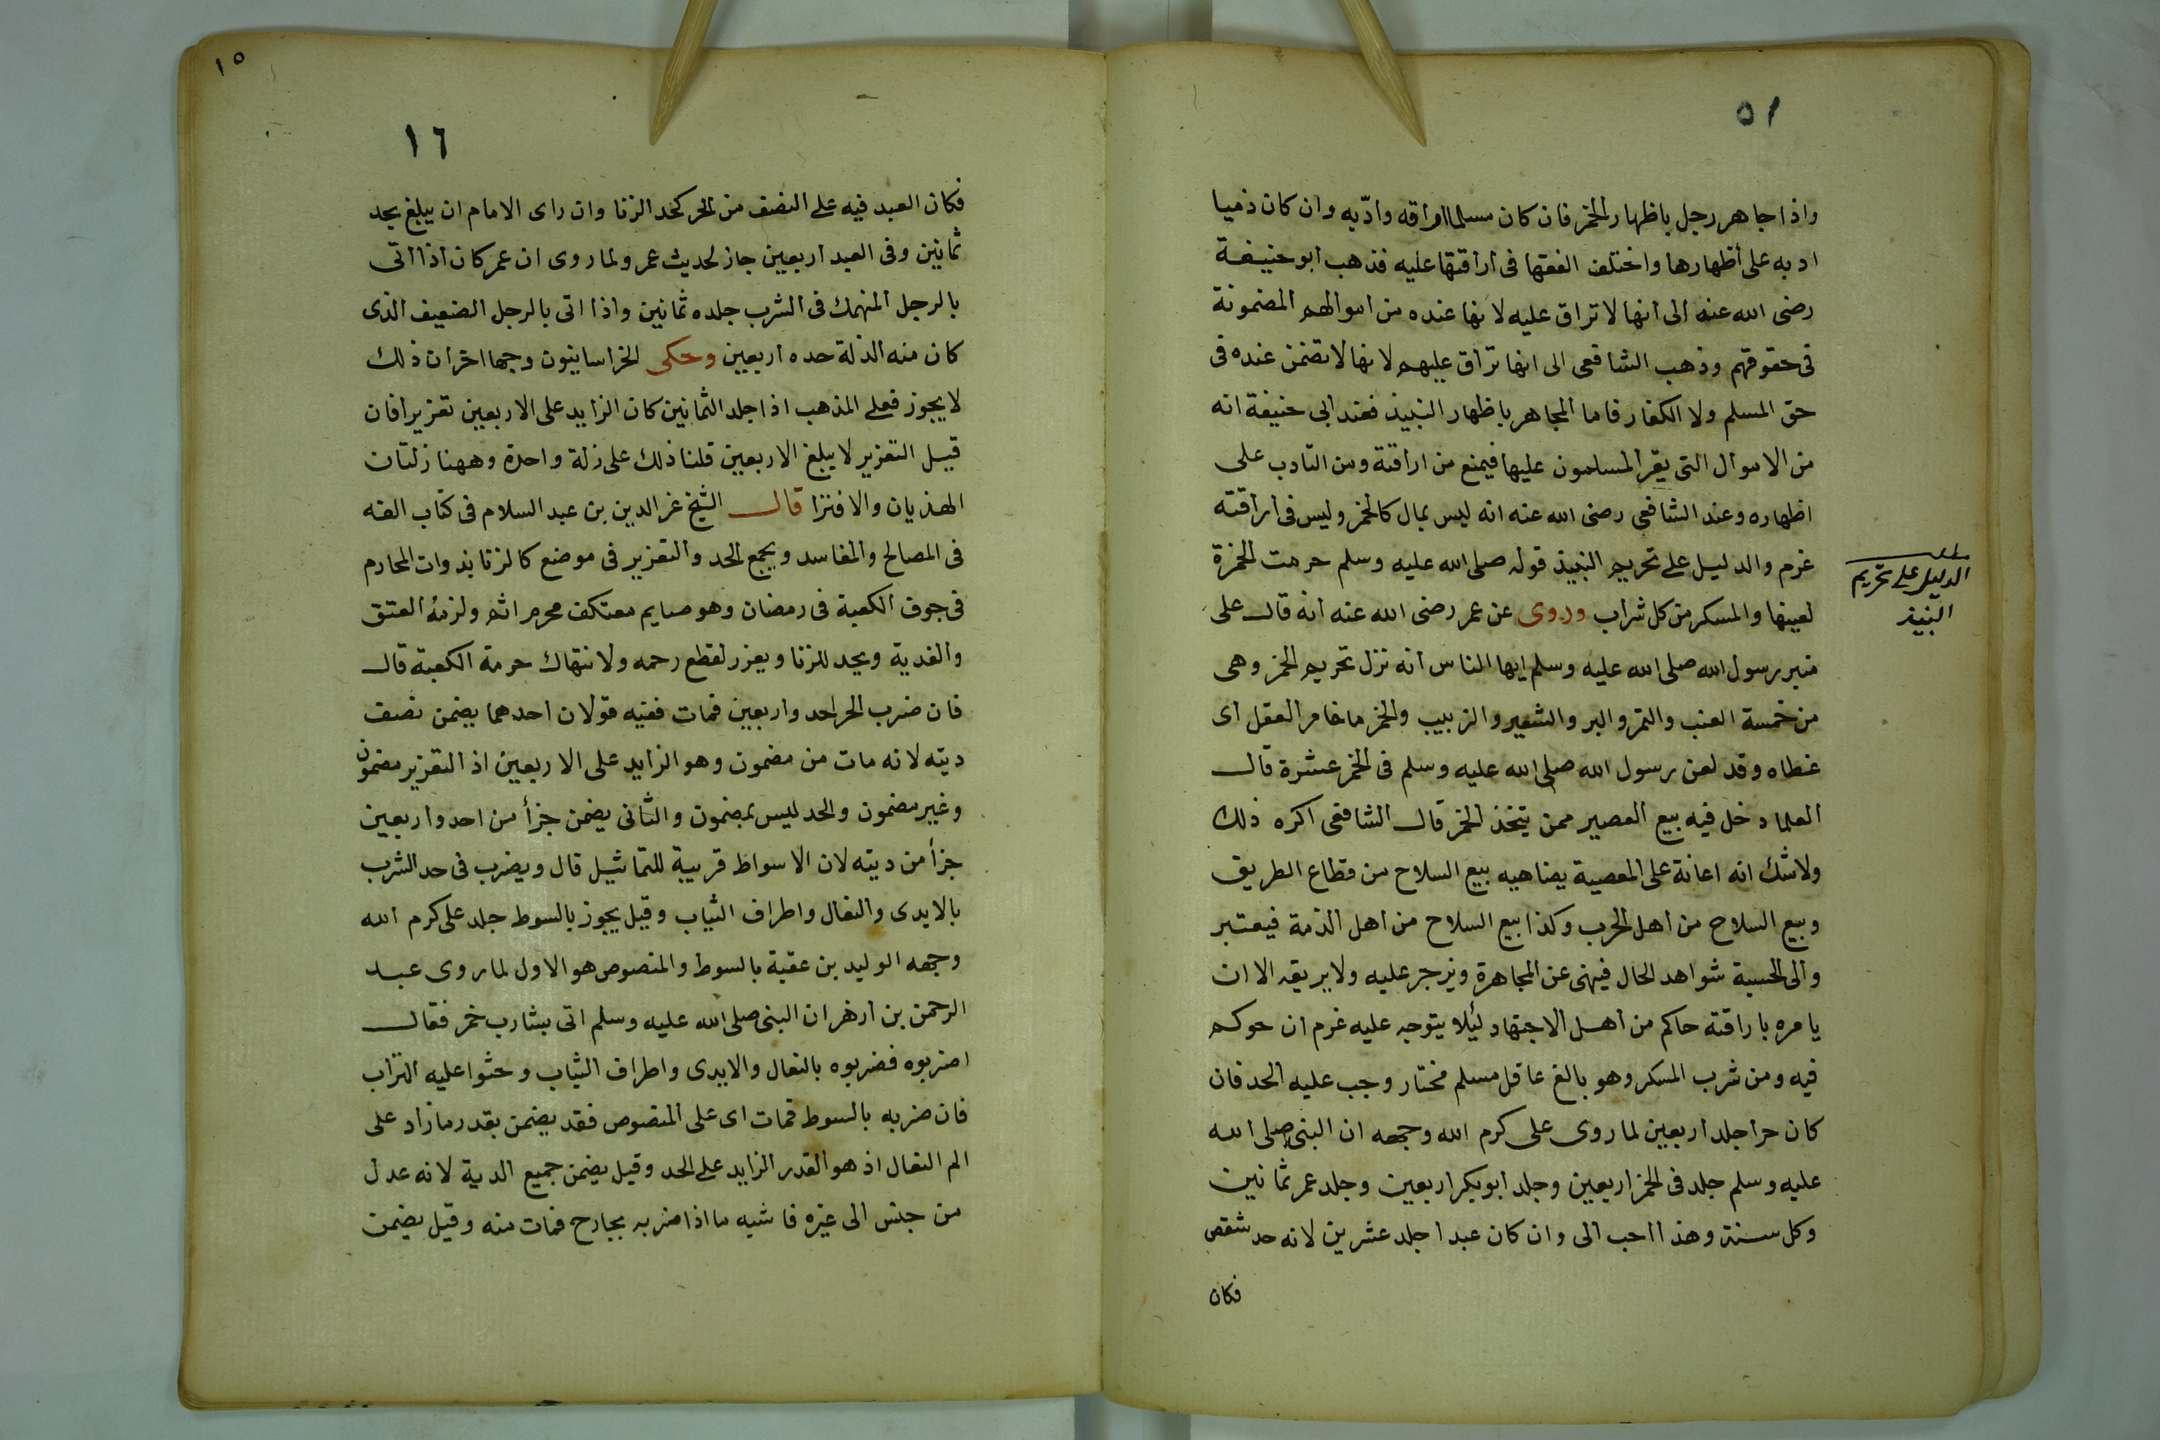 ٥١
واذا جاهر رجل باظهار الخمر فان كان مسلما اراقه وادّبه وان كان ذميا
ادبه على أظهارها واختلف الفقها فى اراقتها عليه فذهب ابو حنيفة
رضى الله عنه الى انها لا تراق عليه لانها عنده من اموالهم المضمونة
فى حقوقهم وذهب الشافعى الى انها تراق عليهم لانها لا تضمن عنده فى
حق المسلم ولا الكفار فاما المجاهر باظهار النبيذ فعند ابى حنيفة انه
من الاموال التى يقر المسلمون عليها فيمنع من اراقته ومن التادب على
اظهاره وعند الشافعي رضى الله عنه انه ليس بمال كالخمر وليس فى اراقته
غرم والدليل على تحريم النبيذ قوله صلى الله عليه وسلم حرمت الخمرة
لعينها والمسكر من كل شراب وروى عن عمر رضى الله عنه انه قال على
منبر رسول الله صلى الله عليه وسلم ايها الناس انه نزل تحريم الخمر وهى
من خمسة العنب والتمر والبر والشعير والزبيب والخمر ما خامر العقل اى
غطاه وقد لعن رسول الله صلى الله عليه وسلم فى الخمر عشرة قال
العلما دخل فيه بيع العصير ممن يتخذ الخمر قال الشافعى اكره ذلك
ولا شك انه اعانة على المعصية يضاهيه بيع السلاح من قطاع الطريق
وبيع السلاح من اهل الحرب وكذا بيع السلاح من اهل الذمة فيعتبر
والى الحسبة شواهد الحال فينهى عن المجاهرة ويزجر عليه ولا يريقه الا ان
يامره باراقته حاكم من اهل الاجتهاد ليئلا يتوجه عليه غرم ان حوكم
فيه ومن شرب المسكر وهو بالغ عاقل مسلم مختار وجب عليه الحد فان
كان حرا جلد اربعين لما روى على كرم الله وجهه ان النبى صلى الله
عليه وسلم جلد فى الخمر اربعين وجلد ابو بكر اربعين وجلد عمر ثمانين
وكل سنة وهذا احب الى وان كان عبدا جلد عشرين لانه حد شقص
فكان
الدليل على تحريم
النبيذ
١٥
١٦
فكان العبد فيه على النصف من الحر كحد الزنا وان راى الامام ان يبلغ بحد
ثمانين وفى العبد اربعين جاز لحديث عمر ولما روى ان عمر كان اذا اتى
بالرجل المنهمك فى الشرب جلده ثمانين واذا اتى بالرجل الضعيف الذى
كان منه الذلة حده اربعين وحكى الخراسانيون وجها اخر ان ذلك
لا يجوز فعلى المذهب اذا جلد الثمانين كان الزايد على الاربعين تعزيرا فان
قيل التعزير لا يبلغ الاربعين قلنا ذلك على زلة واحدة وههنا زلتان
الهذيان والافترا قال الشيخ عز الدين بن عبد السلام فى كتاب الفه
فى المصالح والمفاسد ويجمع الحد والتعزير فى موضع كالزنا بذوات المحارم
فى جوف الكعبة فى رمضان وهو صايم معتكف محرم اثم ولزمهُ العتق
والفدية ويحد للزنا ويعزر لقطع رحمه ولانتهاك حرمة الكعبة قال
فان ضرب الحر احد واربعين فمات ففيه قولان احدهما يضمن نصف
ديته لانه مات من مضمون وهو الزايد على الاربعين اذ التعزير مضمون
وغير مضمون والحد ليس بمضمون والثانى يضمن جزأ من احد واربعين
جزأ من ديته لان الاسواط قريبة للتماثيل قال ويضرب فى حد الشرب
بالايدى والنعال واطراف الثياب وقيل يجوز بالسوط جلد على كرم الله
وجهه الوليد بن عقبة بالسوط والمنصوص هو الاول لما روى عبد
الرحمن بن ازهر ان النبى صلى الله عليه وسلم اتى بشارب خمر فقال
اضربوه فضربوه بالنعال والايدى واطراف الثياب وحثوا عليه التراب
فان ضربه بالسوط فمات اى على المنصوص فقد يضمن بقدر ما زاد على
الم النعال اذ هو القدر الزايد على الحد وقيل يضمن جميع الدية لانه عدل
من جنس الى غيره فاشبه ما اذا ضربه بجارح فمات منه وقيل يضمن